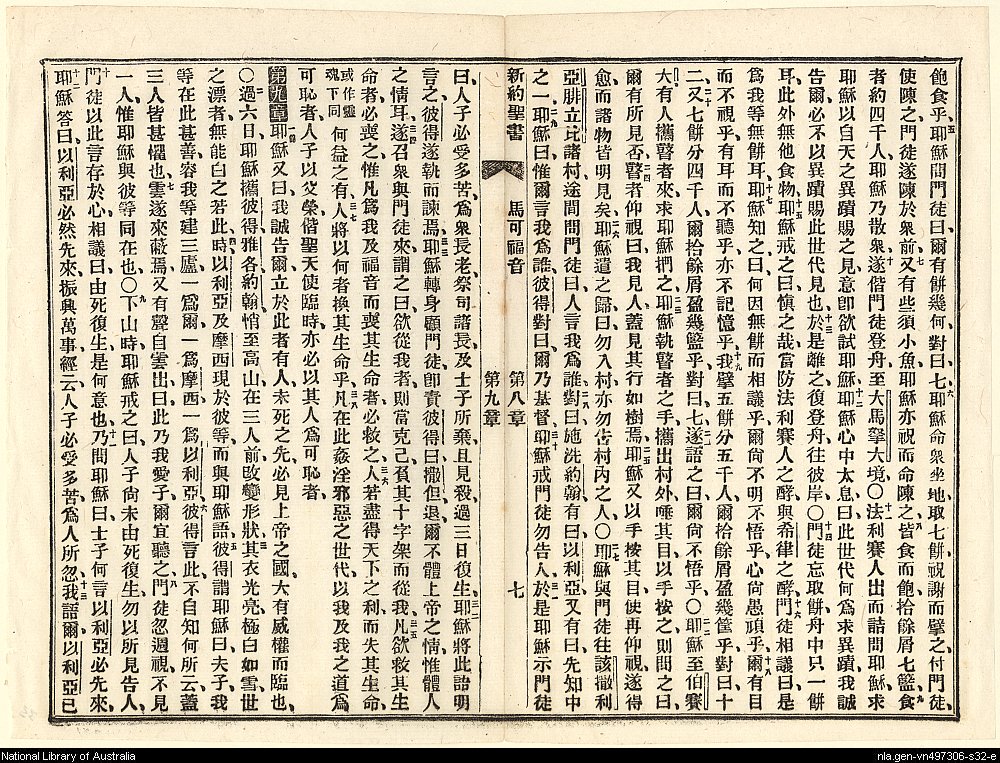 飽食乎耶穌問門徒曰爾有餅幾何對曰七耶穌命衆坐地取七餅祝謝而擘之付門徒
使陳之門徒遂陳於衆前又有些須小魚耶穌亦祝而命陳之皆食而飽拾餘屑七籃食
者約四千人耶穌乃散衆遂偕門徒登舟至大馬拏大境〇法利賽人出而詰問耶穌求
耶穌以自天之異蹟賜之見意卽欲試耶穌耶穌心中太息曰此世代何爲求異蹟我誠
告爾必不以異蹟賜此世代見也於是離之復登舟往彼岸〇門徒忘取餅舟中只一餅
耳此外無他食物耶穌戒之曰愼之哉當防法利賽人之酵與希律之酵門徒相議曰是
爲我等無餅耳耶穌知之曰何因無餅而相議乎爾尙不明不悟乎心尙愚頑乎爾有目
而不視乎有耳而不聽乎亦不記憶乎我擘五餅分五千人爾拾餘屑盈幾筐乎對曰十
二又七餅分四千人爾拾餘屑盈幾籃乎對曰七遂語之曰爾尙不悟乎〇耶穌至伯賽
大有人攜瞽者來求耶穌捫之耶穌執瞽者之手攜出村外唾其目以手按之則問之曰
爾有所見否瞽者仰視曰我見人蓋見其行如樹焉耶穌又以手按其目使再仰視遂得
愈而諸物皆明見矣耶穌遣之歸曰勿入村亦勿告村內之人〇耶穌與門徒往該撒利
亞腓立比諸村途間問門徒曰人言我爲誰對曰施洗約翰有曰以利亞又有曰先知中
之一耶穌曰惟爾言我爲誰彼得對曰爾乃基督耶穌戒門徒勿告人於是耶穌示門徒
新約聖書 馬可福音 第八章 第九章 七
曰人子必受多苦爲衆長老祭司諸長及士子所棄且見殺過三日復生耶穌將此語明
言之彼得遂執而諫焉耶穌轉身顧門徒卽責彼得曰撒但退爾不體上帝之情惟體人
之情耳遂召衆與門徒來謂之曰欲從我者則當克己負其十字架而從我凡欲救其生
命者必喪之惟凡爲我及福音而喪其生命者必救之人若盡得天下之利而失其生命
或作靈魂下同何益之有人將以何者換其生命乎凡在此姦淫邪惡之世代以我及我之道爲
可恥者人子以父榮偕聖天使臨時亦必以其人爲可恥者
第九章耶穌又曰我誠告爾立於此者有人未死之先必見上帝之國大有威權而臨也
〇過六日耶穌攜彼得雅各約翰悄至高山在三人前改變形狀其衣光亮極白如雪世
之漂者無能白之若此時以利亞及摩西現於彼等而與耶穌語彼得謂耶穌曰夫子我
等在此甚善容我等建三廬一爲爾一爲摩西一爲以利亞彼得言此不自知何所云蓋
三人皆甚懼也雲遂來蔽焉又有聲自雲出曰此乃我愛子爾宜聽之門徒忽週視不見
一人惟耶穌與彼等同在也〇下山時耶穌戒之曰人子尙未由死復生勿以所見告人
門徒以此言存於心相議曰由死復生是何意也乃問耶穌曰士子何言以利亞必先來
耶穌答曰以利亞必然先來振興萬事經云人子必受多苦爲人所忽我語爾以利亞已
National Library of Australia
nla.gen-vn497306-s32-e